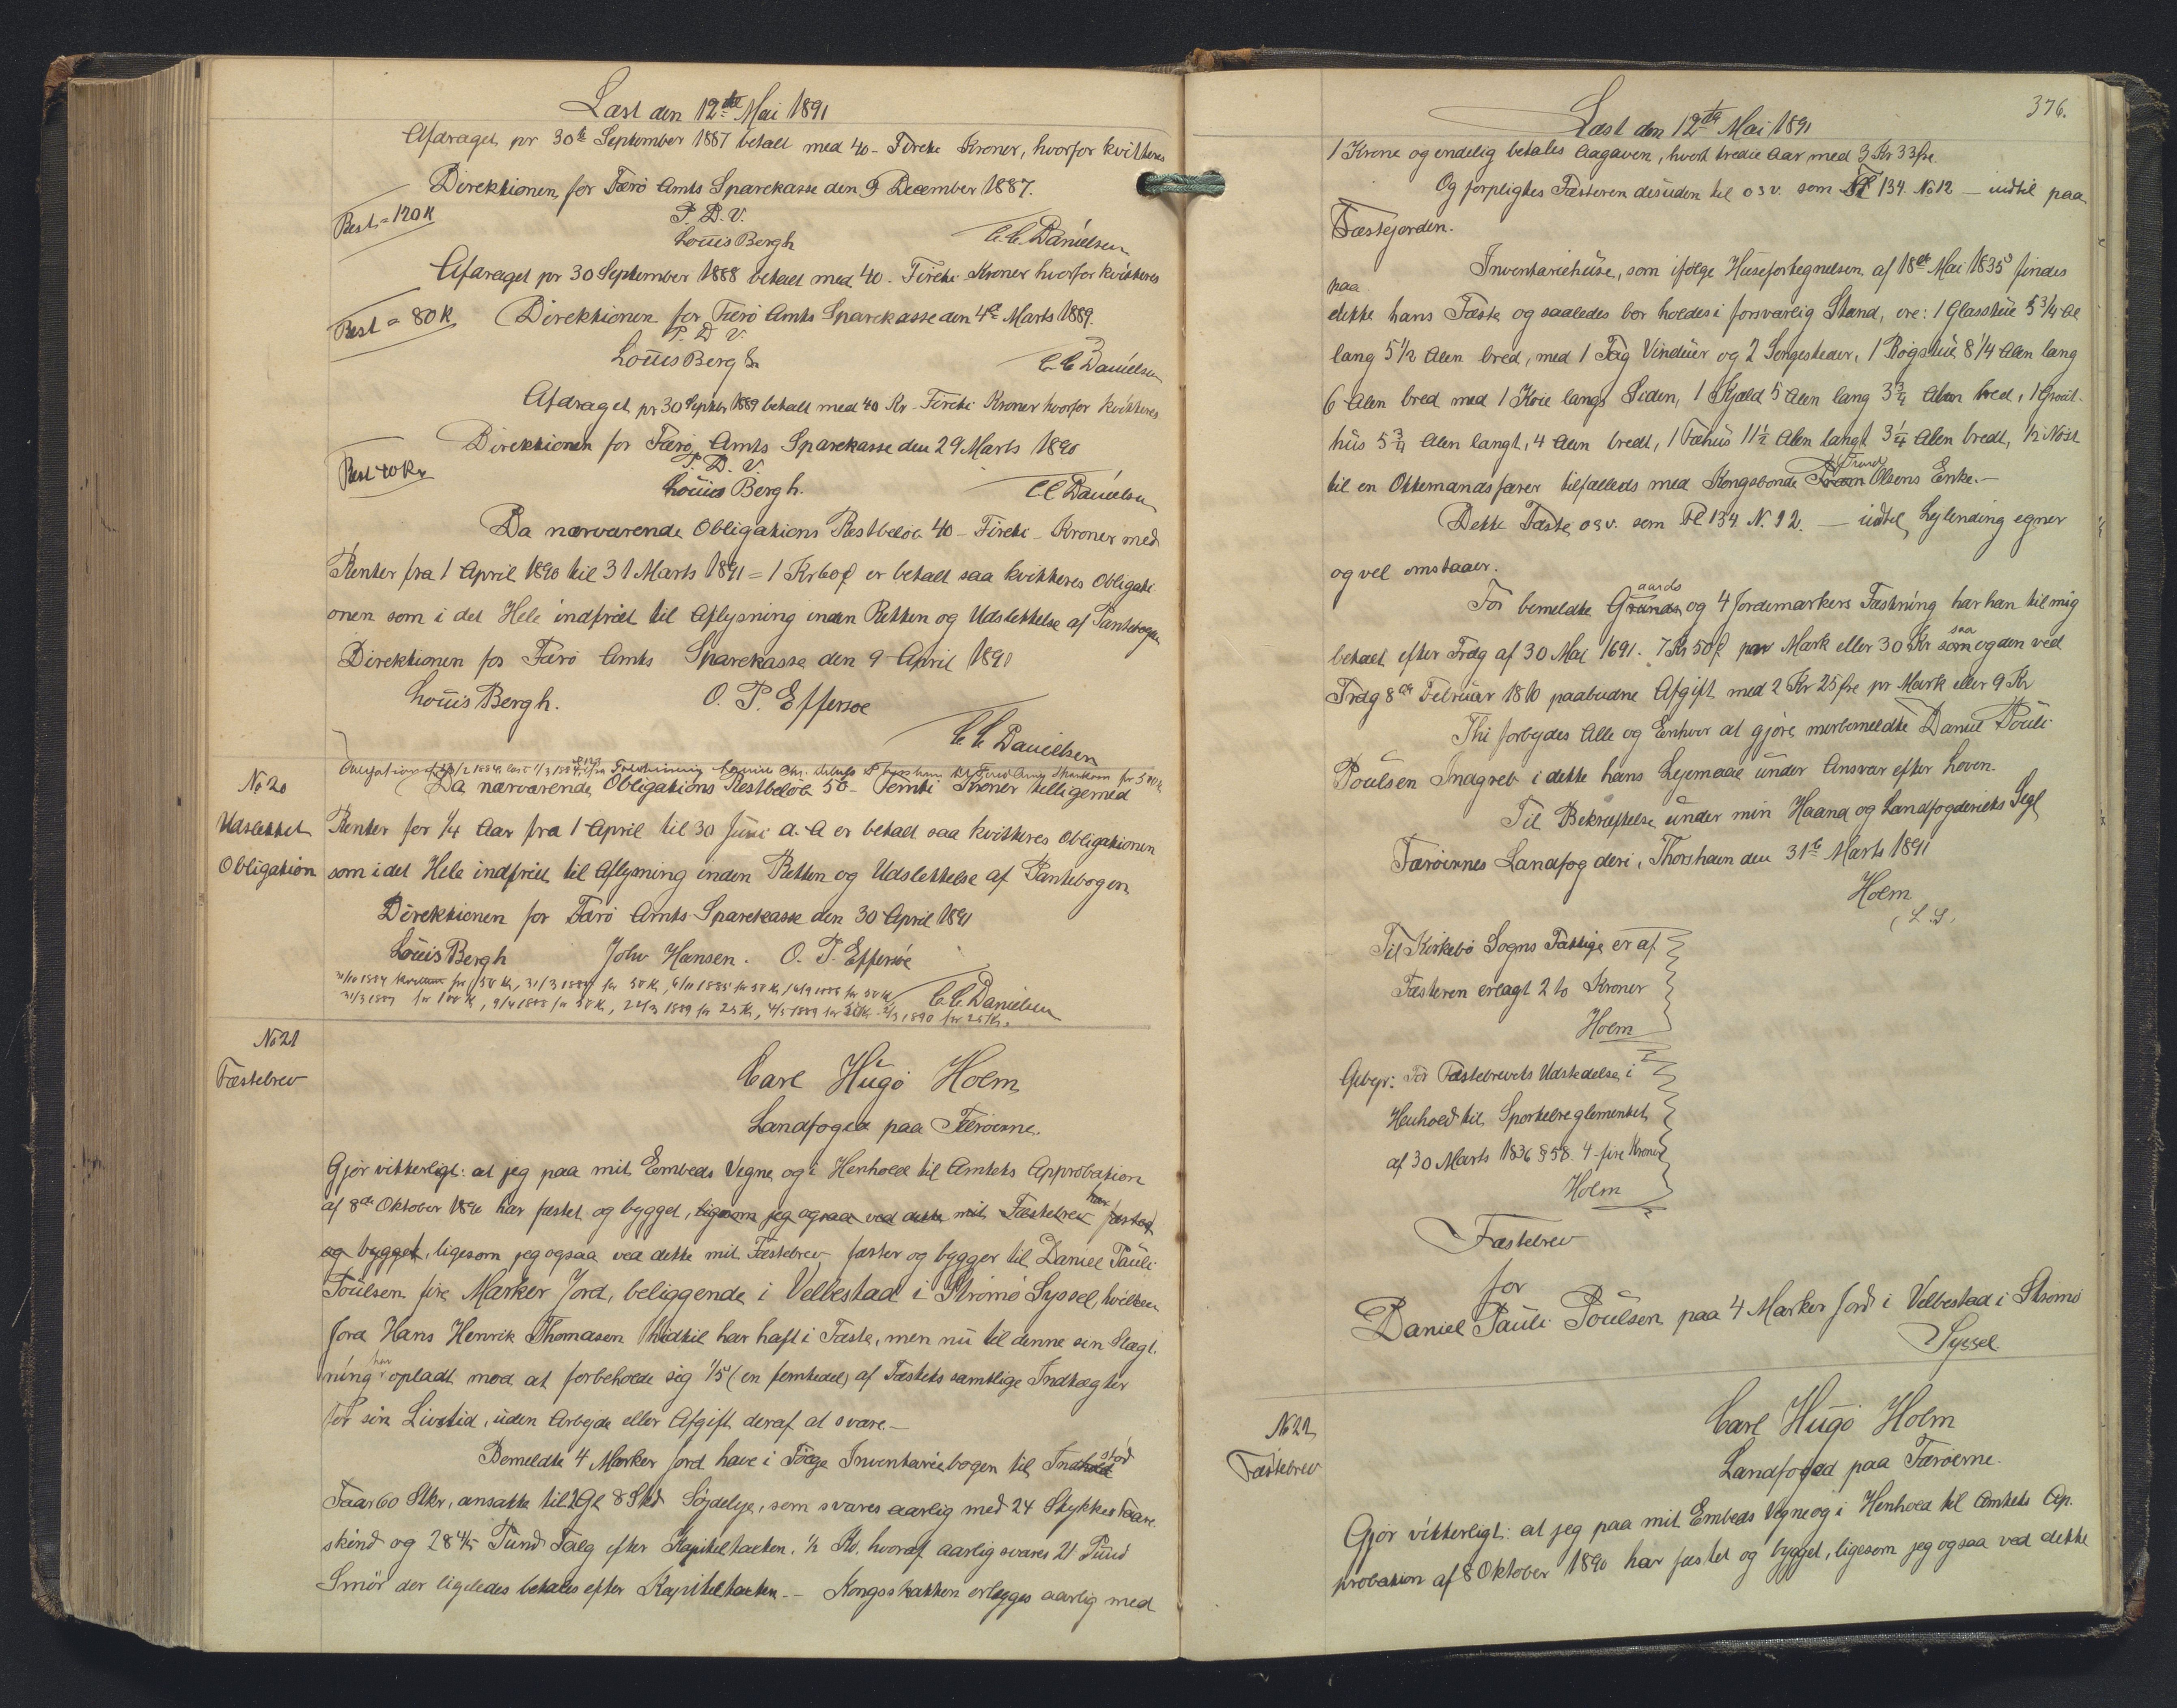 Læst den 12te Mai 1891
Afdraget pr 30te September 1887 betalt med 40 - Fireti Kroner, hvorfor kvitteres
Direktionen for Færö Amts Sparekasse den 9 December 1887.
Rest = 120 K
P. D. V.
Louis Bergh
C. C. Danielsen
Afdraget pr 30 September 1888 betalt med 40 - Fireti Kroner hvorfor kvitteres
Rest = 80 K
Direktionen for Færö Amts Sparekasse den 4de Marts 1889.
P. D. V.
Louis Bergh
C C Danielsen
Afdraget pr 30 Septbr 1889 betalt med 40 Kr - Fireti Kroner hvorfor kvitteres
Direktionen for Færö Amts Sparekasse den 29 Marts 1890
Rest 40 Kr
P. D. V.
Louis Bergh.
C C Danielsen
Da nærværende Obligations Restbeløb 40 - Fireti - Kroner med
Renter fra 1 April 1890 til 31 Marts 1891 = 1 Kr 60 ø er betalt saa kvitteres Obligati
onen som i det Hele indfriet til Aflysning inden Retten og Udslettelse af Pantebogen
Direktionen for Færö Amts Sparekasse den 9 April 1891
Louis Bergh.
O. P. Effersöe
C C Danielsen
No 20
Udslettet
Obligation
Da nærværende Obligations Restbeløb 50 - Femti Kroner tilligemed
Renter for 1/4 Aar fra 1 April til 30 Juni d. A er betalt saa kvitteres Obligationen
som i det Hele indfriet til Aflysning inden Retten og Udslettelse af Pantebogen
Direktionen for Færö Amts Sparekasse den 30 April 1891
Louis Bergh
John Hansen.
O. P. Effersöe
C C Danielsen
No 21
Fæstebrev
Carl Hugo Holm
Landfoged paa Færöerne.
Gjör vitterligt: at jeg paa mit Embeds Vegne og i Henhold til Amtets Approbation
af 8de Oktober 1890 har fæstet og bygget, ligesom jeg ogsaa ved dette mit Fæstebrev har fæstet
og bygget, ligesom jeg ogsaa ved dette mit Fæstebrev fæster og bygger til Daniel Pauli
Poulsen fire Marker Jord, beliggende i Velbestad i Strömö Syssel, hvilken
Jord Hans Henrik Thomasen hidtil har haft i Fæste, men nu til denne sin Slægt-
ning har opladt mod at forbeholde sig 1/5 (en femtedel) af Fæstets samtlige Indtægter
for sin Livstid, uden Arbejde eller Afgift deraf at svare. -
Bemeldte 4 Marker Jord have i Følge Inventariebogen til Indhold stød
Faar 60 Stkr, ansatte til 2 Gl 8 Skd Söjdelje, som svares aarlig med 24 Stykker Faare
skind og 28 4/5 Pund Talg efter Kapiteltakten. 1/2 Ko. hvoraf aarlig svares 21 Pund
Smör der ligeledes betales efter Kapiteltakten. - Kongsskatten erlægges aarlig med
376.
Læst den 12te Mai 1891
1 Krone og endelig betales Aagaven, hvert tredie Aar med 3 Kr 33 øre.
Og forpligtes Fæsteren desuden til osv. som Fol 134. No 12 - indtil paa
Fæstejorden.
Inventariehuse, som ifølge Husefortegnelsen af 18de Mai 1835 findes
paa
dette hans Fæste og saaledes bør holdes i forsvarlig Stand, ere: 1 Glasstue 5 3/4 Al
lang 5 1/2 Alen bred, med 1 Fag Vinduer og 2 Sengesteder, 1 Rögstue 8 1/4 Alen lang
6 Alen bred med 1 Koie langs Siden, 1 Hjald 5 Alen lang 3 3/4 Alen bred, 1 Groit-
hus 5 3/4 Alen langt, 4 Alen bredt, 1 Fæhus 11 1/2 Alen langt 3 1/4 Alen bredt, 1/2 Nöst
til en Ottemandsfarer tilfælleds med Kongsbonde Fram Trund Olsens Enke. -
Dette Fæste osv. som Fol 134 No. 12. - indtil Lejlending egner
og vel omstaaer.
For bemeldte Grunds aards og 4 Jordemarkers Fæstning har han til mig
betalt efter Frdg af 30 Mai 1691. 7 Kr 50 ø par Mark eller 30 Kr som saa og den ved
Frdg 8de Februar 1810 paabudne Afgift med 2 Kr 25 øre pr Mark eller 9 Kr
Thi forbydes Alle og Enhver at gjøre merbemeldte Daniel Pouli
Poulsen Indgreb i dette hans Lejemaal under Ansvar efter Loven.
Til Bekræftelse under min Haand og Landfogderiets Segl
Færöernes Landfogderi, Thorshavn den 31te Marts 1891
Holm
(L. S.
Til Kirkebö Sogns Fattige er af
Fæsteren erlagt 2 to Kroner
Holm
Gebyr: For Fæstebrevets Udstedelse i
Henhold til Sportelreglementet
af 30 Marts 1836 § 58. 4 - fire Kroner
Holm
Fæstebrev
for
Daniel Pauli Poulsen paa 4 Marker Jord i Velbestad i Strömö
Syssel
No 22
Fæstebrev
Carl Hugo Holm
Landfoged paa Færöerne.
Gjör vitterligt: at jeg paa mit Embeds Vegne og i Henhold til Amtets Ap-
probation af 8 Oktober 1890 har fæstet og bygget, ligesom jeg ogsaa ved dette